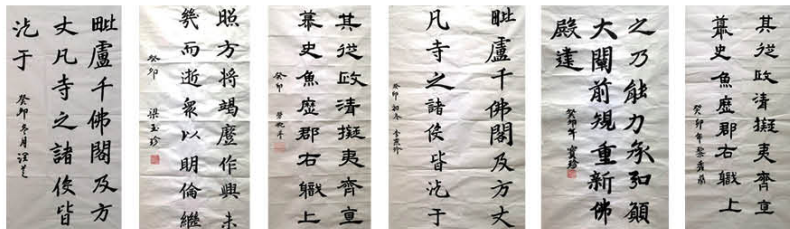 毗盧千佛閣及方
丈凡寺之諸役皆
汔于
癸卯冬月
照方将竭蹙作興未
幾而逝衆以明倫繼
癸卯 梁玉珍
其從政清擬夷齊直
慕史魚歷郡右職上
癸卯
毗盧千佛閣及方丈
凡寺之諸役皆汔于
癸卯 初冬
之乃能力承弘願
大闡前規重新佛
殿達
癸卯年
其從政清擬夷齊直
慕史魚歷郡右職上
癸卯年